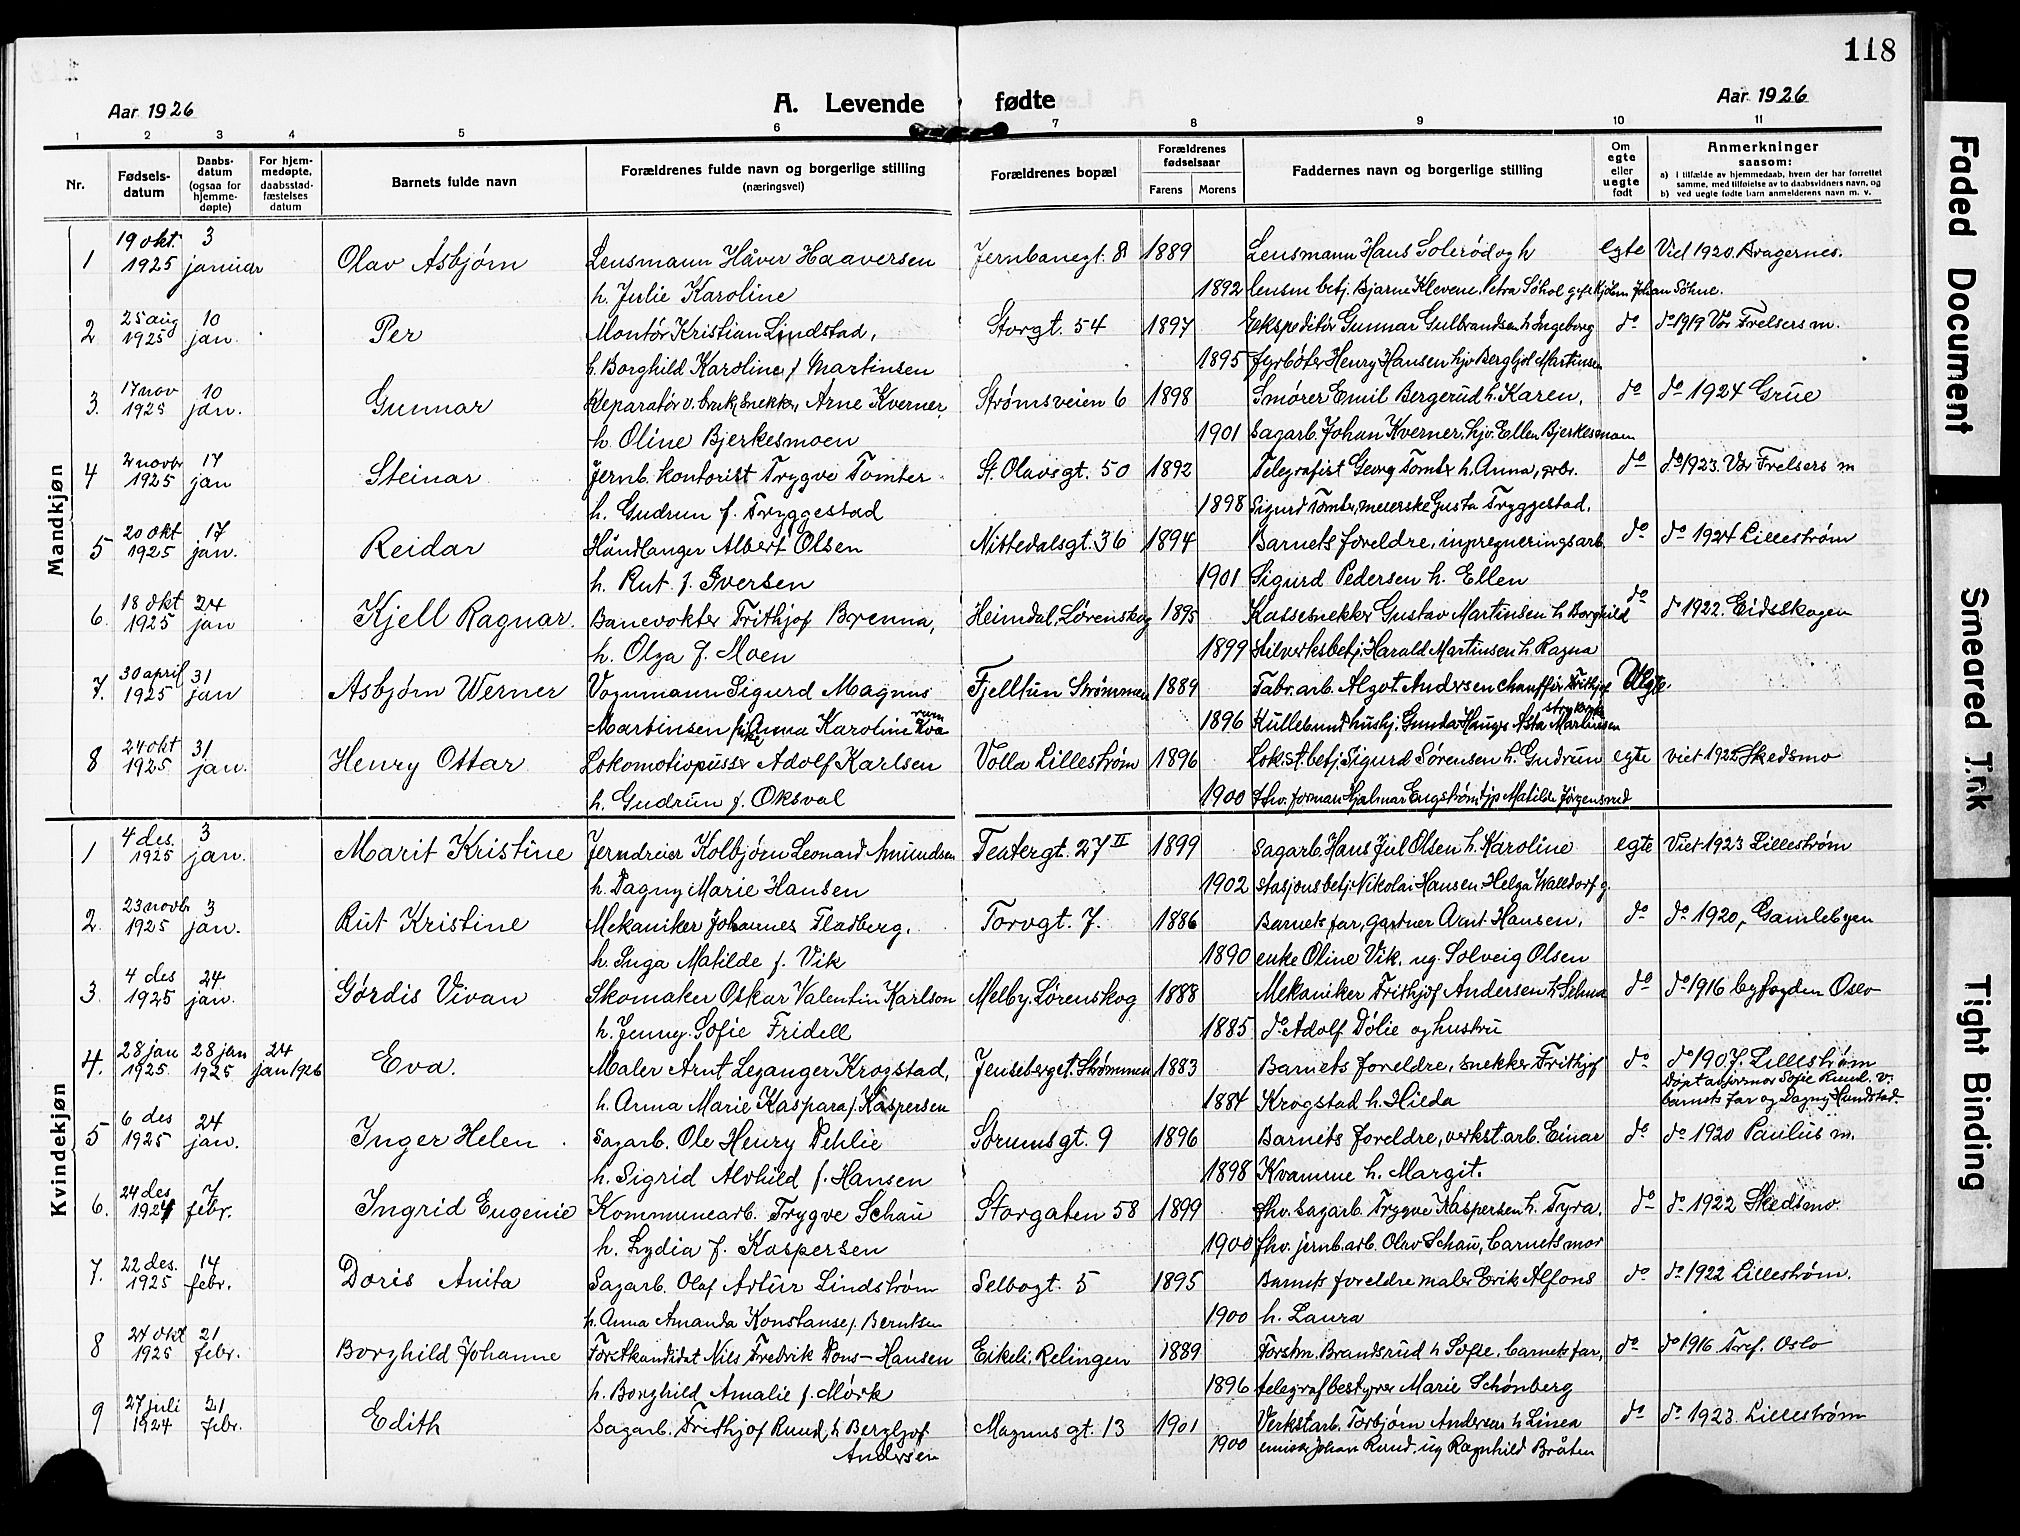 118
Aar 1926 A. Levende fødte Aar 1926
1 2 3 4 5 6 7 8 9 10 11
Nr. Fødsels-datum Daabs-datum (ogsaa for hjemme-døpte) For hjem-medøpte, daabsstad-fæstelses datum Barnets fulde navn Forældrenes fulde navn og borgerlige stilling (næringsvei) Forældrenes bopæl Forældrenes fødselsaar Farens Morens Faddernes navn og borgerlige stilling Om egte eller uegte født Anmerkninger saasom: a) i tilfælde av hjemmedaab, hvem der har forrettet samme, med tilføielse av to daabsvidners navn, og b) ved uegte fødte barn anmelderens navn m. v.
Mandkjøn
1 19 okt. 1925 3 januar Olav Asbjørn Lensmann Håver Haaversen Jernbanegt. 8 1889 Lensmann Hans Solerød og h egte Vid 1920. Bragernes.
h. Julie Karoline 1892 lensm betj. Bjarne Klevene. Petra Søhol
2 25 aug 1925 10 jan. Per Montør Kristian Lindstad, Storgt. 54 1897 Ekspeditør Gunnar Gulbrandsen h Ingeborg do do 1919 Vor Frelsers m.
h. Borghild Karoline f Martinsen 1895 fyrbøter Henry Hansen hjv Bergljot Martinsen
3. 17 nov 1925 10 jan. Gunnar Reparatør v. bruk, snekker Arne Kverner, Strømsveien 6 1898 Smører Emil Bergerud h. Karen, do do 1924 Grue
h. Oline Bjerkesmoen 1901 sagarb. Johan Kverner, hjv. Ellen Bjerkesmoen
4 2 novbr 1925 17 jan Steinar Jernb. kontorist Trygve Tomter St. Olavsgt. 50 1892 Telegrafist Georg Tomter h. Anna, grbr. do do 1923. Vår Frelsers m
h. Gudrun f. Tryggestad 1898 Sigurd Tomter, meierske Gusta Tryggestad.
5 20 okt 1925 17 jan. Reidar Håndlanger Albert Olsen Nittedalsgt. 36 1894 Barnets foreldre, impregneringsarb. do do 1924 Lillestrøm
h. Rut f. Iversen 1901 Sigurd Pedersen h. Ellen
6. 18 okt 1925 24 jan Kjell Ragnar. Banevokter Frithjof Brenna, Heimdal, Lørenskog 1895 Kassesnekker Gustav Martinsen h Borghild do do 1922. Eidskogen
h. Olga f. Moen 1899 silverksbetj. Harald Martinsen h. Ragna
7. 30 april 1925 31 jan Asbjørn Werner Vognmann Sigurd Magnus Fjelltun Strømmen 1889 Fabr. arb. Algot Andersen chauffør Frithjof Uegte.
Martinsen pike Anna Karoline Kvaran 1896 Kullebund hushj. Gunda Hauge Asta Martinsen
8 24 okt 1925 31 jan. Henry Ottar Lokomotivpusser Adolf Karlsen Volla Lillestrøm 1896 Lok. st. betj. Sigurd Sørensen h. Gudrun egte viet 1922 Skedsmo
h. Gudrun f. Oksval 1900 fhv. forman Hjalmar Engstrøm tjp Matilde Jørgensrud
Kvindekjøn
1 4 des. 1925 3 jan. Marit Kristine Jerndreier Kolbjørn Leonard Amundsen Teatergt. 27 II 1899 Sagarb. Hans Jul Olsen h. Karoline egte Viet 1923 Lillestrøm
h. Dagny Marie Hansen 1902 stasjonsbetj. Nikolai Hansen. Helga Walldorf g.
2. 23 novbr 1925 3 jan. Rut Kristine Mekaniker Johannes Fladberg, Torvgt. 7. 1886 Barnets far, gartner Arnt Hansen, do do 1920, Gamlebyen
h. Inga Matilde f. Vik 1890 enke Oline Vik. ug. Solveig Olsen
3. 4 des 1925 24 jan. Gørdis Vivan Skomaker Oskar Valentin Karlson Melby, Lørenskog 1888 Mekaniker Frithjof Andersen h Selma do do 1916 byfogden Oslo
h. Jenny Sofie Fridell 1885 do Adolf Dølie og hustru
4. 28 jan 1925. 28 jan 1925 24 jan 1926 Eva. Maler Arnt Leganger Krogstad, Jenseberget. Strømmen 1883 Barnets foreldre, snekker Frithjof do do 1907. Lillestrøm
h. Anna Marie Kaspara f. Kaspersen 1884 Krogstad h. Hilda Døpt av jormor Sofie Ruud. V: barnets far og Dagny Hundstad.
5 6 des 1925 24 jan. Inger Helen Sagarb. Ole Henry Dehlie Storumsgt. 9 1896 Barnets foreldre, verkst. arb. Einar do do 1920 Paulus m.
h. Sigrid Alvhild f. Hansen 1898 Kvamme h. Margit.
6. 24 des 1924 7 febr. Ingrid Eugenie Kommunearb. Trygve Schau Storgaten 58 1899 fhv. sagarb. Trygve Kaspersen h. Tyra. do do 1922 Skedsmo.
h. Lydia f. Kaspersen 1900 fhv. jernb. arb. Olav Schau, barnets mor
7. 22 des. 1925 14 febr. Doris Anita Sagarb. Olaf Artur Lindstrøm Selbogt. 5 1895 Barnets foreldre maler Erik Alfons do do 1922 Lillestrøm.
h. Anna Amanda Konstanse f. Berntsen 1900 h. Laura
8 24 okt 1925 21 febr. Borghild Johanne Forstkandidat Nils Fredrik Dons-Hansen Eikeli, Relingen 1889 Forstm. Brandsrud h Sofie, barnets far, do do 1916 Tref. Oslo
h. Borghild Amalie f. Mørk 1896 telegrafbestyrer Marie Schønberg
9 27 juli 1924 21 febr. Edith Sagarb. Frithjof Ruud, h Bergljot Magnus gt. 13 1901 Verkstarb. Torbjørn Andersen h Linea do do 1923. Lillestrøm
Andersen 1900 Johan Ruud, ug Ragnhild Bråten
Faded Document
Smeared Ink
Tight Binding